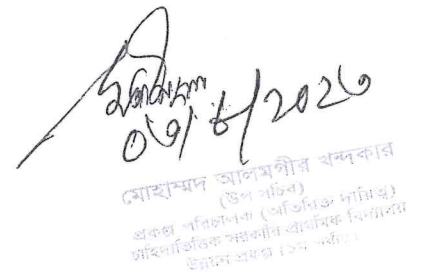 ০৩/৮/২০২৩
মোহাম্মদ আলমগীর খন্দকার
(উপ সচিব)
প্রকল্প পরিচালক (অতিরিক্ত দায়িত্ব)
চাহিদাভিত্তিক সরকারি প্রাথমিক বিদ্যালয়
উন্নয়ন প্রকল্প (১ম পর্যায়)